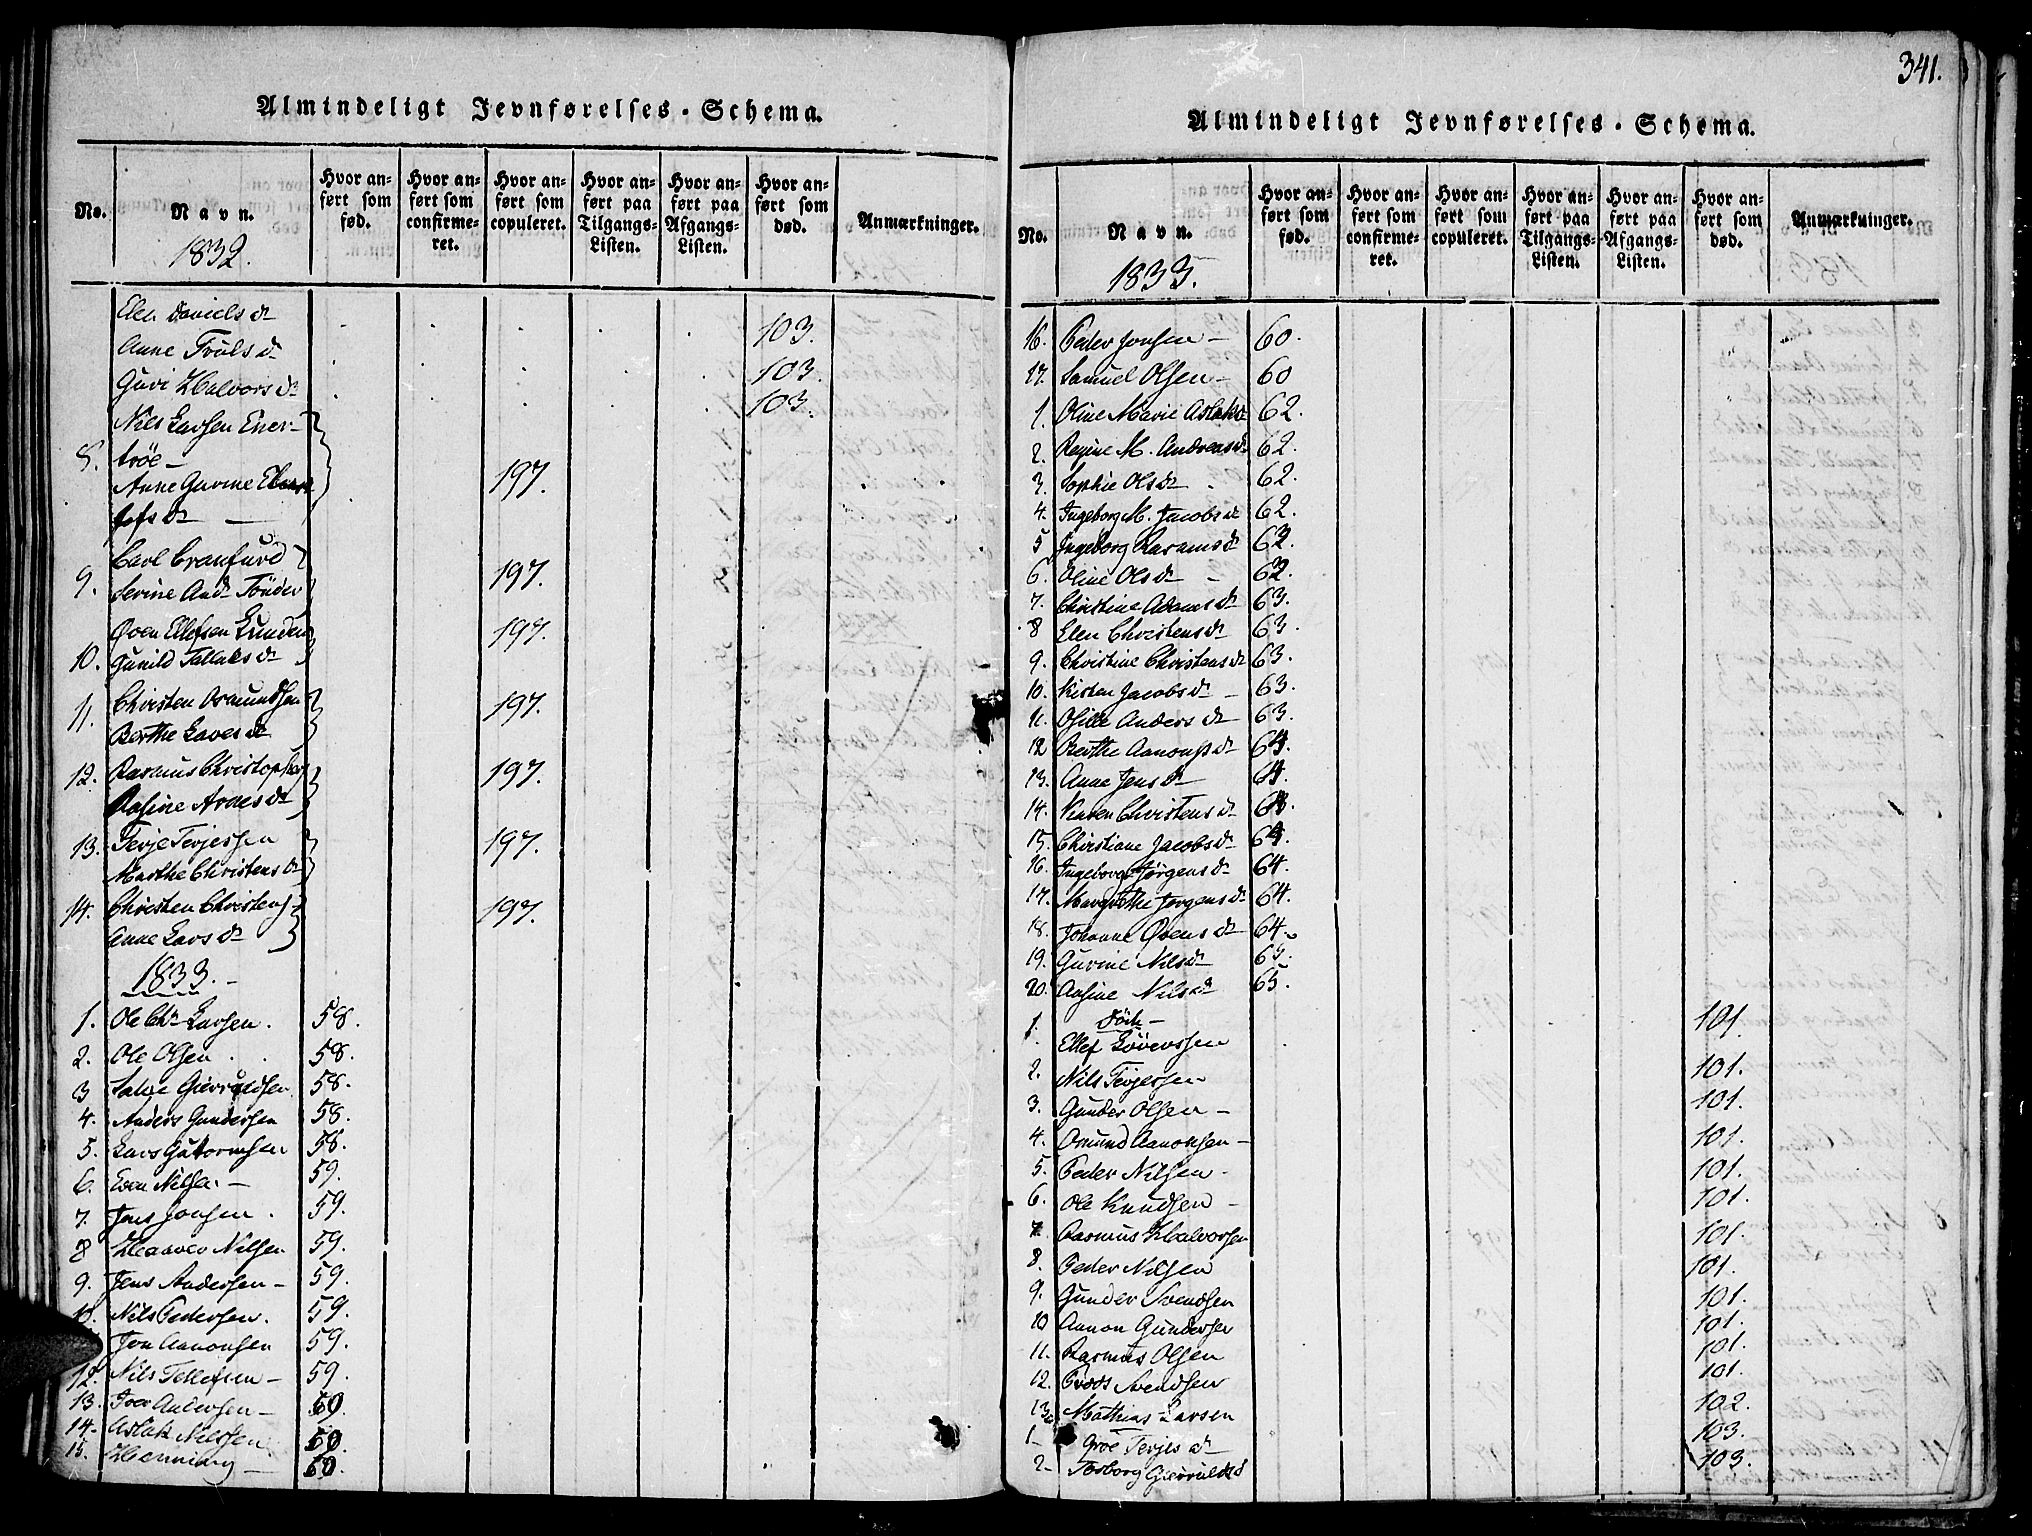 Almindeligt Jevnførelses-Schema.
No.
Navn.
1832.
Hvor anført som fød.
Hvor anført som confirmeret.
Hvor anført som copuleret.
Hvor anført paa Tilgangs-Listen.
Hvor anført paa Afgangs-Listen.
Hvor anført som død.
Anmærkninger.
Elen Daniels dr 103.
Anne Truls dr 103.
Guri Halvors dr 103.
Nils Larsen Ener-
8. trøe - 197.
Anne Gurine
dr -
Carl Cranfurd
9. Serine And. Tönder 197.
Øven Ellefsen Lunden 197.
10. Gunild Tallaks dr
Christen Osmundsen
11. Berthe Lares dr 197.
12. Rasmus Christophers 197.
Rasine Arnes dr
13. Terje Terjessen 197.
Marthe Christens dr
14. Christen Christens 197.
Anne Lars dr
1833. -
1. Ole Chr. Larsen. 58.
2. Ole Olsen. 58.
3 Salve Gierruldsen 58.
4. Anders Gundersen 58.
5. Lars Guttormsen 58.
6. Even Nilsen - 59.
7. Jens Jonsen. 59.
8 Haavor Nilsen 59.
9. Jens Andersen - 59.
10. Nils Pedersen. 59.
Jon Aanonsen 59.
12. Nils Tellefsen - 59.
13. Iver Andersen - 60.
14. Aslak Nilssen 60.
15. Henning - 60.
341.
Almindeligt Jevnførelses-Schema.
No.
Navn.
1833.
Hvor anført som fød.
Hvor anført som confirmeret.
Hvor anført som copuleret.
Hvor anført paa Tilgangs-Listen.
Hvor anført paa Afgangs-Listen.
Hvor anført som død.
Anmærkninger.
16. Peder Jonsen - 60.
17. Samuel Olsen - 60
1. Oline Marie Aslaks dr 62.
2. Regine M. Andreas dr 62.
3. Sophie Ols dr 62.
4. Ingeborg M. Jacobs dr 62.
5 Ingeborg Rasmus dr 62.
6. Oline Ols dr - 62.
7. Christine Adams dr 63.
8 Elen Christens dr 63.
9. Christine Christens dr 63.
10. Kisten Jacobs dr - 63.
11. Anders dr 63.
12 Berthe Aanons dr 64.
13. Anne Jens dr 64.
14. Karen Christens dr
15. Christiane Jacobs dr 64.
16. Ingeborg Jörgens dr 64.
17. Margrethe Jörgens dr 64.
18. Johanne Øvens dr 64.
19. Gurine Nils dr 65.
20. Aasine Nils dr 65.
Död -
1. Ellef Sörenssen 101.
2. Nils Terjessen 101.
3. Gunder Olsen - 101.
4. Osmund Aanonsen - 101.
5. Peder Nilsen - 101.
6. Ole Knudsen - 101.
7 Rasmus Halvorsen 101.
8. Peder Nilsen 101.
9. Gunder Svendsen 101.
10 Aanon Gundersen 101.
11. Rasmus Olsen 101.
12. Svendsen 101.
13. Mathias Larsen 102.
1 - Groe Terjes dr 103.
2 - Torborg Gierrulds d 103.